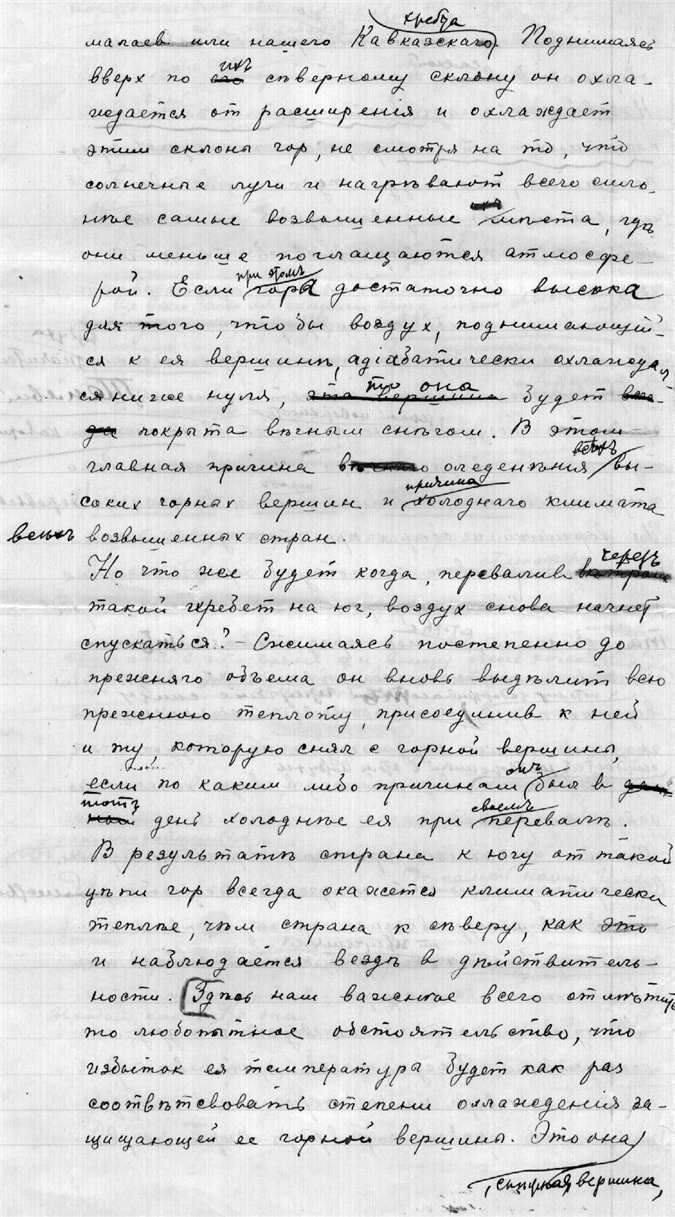 хребта
малаев или нашего Кавказскаго. Поднимаясь
ихъ
вверх по его сѣверному склону он охла-
ждается от расширенія и охлаждает
этим склоны гор, не смотря на то, что
солнечные лучи и нагрѣвают всего силь-
нѣе самые возвышенные ихъ мѣста, гдѣ
они меньше поглащаются атмосфе-
при этомъ
рой. Если гора достаточно высока
для того, чтобы воздух, поднимающій-
ся к ея вершинѣ, адіабатически охлаждал
то она
ся ниже нуля, эта вершина будет все-
гда покрыта вѣчным снѣгом. В этом
всѣхъ
главная причина вѣчнаго оледенѣнія вы-
причина
соких горных вершин и холоднаго климата
всѣхъ возвышенных стран.
через
Но что же будет когда, перевалив
такой хребет на юг, воздух снова начнет
спускаться? — Сжимаясь постепенно до
прежняго объема он вновь выдѣлит всю
прежнюю теплоту, присоединив к ней
и ту, которую снял с горной вершины,
онъ
если по каким либо причинам был в
тотъ своемъ
день холоднѣе ея при перевалѣ.
В результатѣ страна к югу от такой
цѣпи гор всегда окажется климатически
теплѣе, чѣм страна к сѣверу, как это
и наблюдается вездѣ в дѣйствитель-
ности. Здѣсь нам важнѣе всего отмѣтить
то любопытное обстоятельство, что
избыток ея температуры будет как раз
соотвѣтсвовать степени охлажденія за-
щищающей ее горной вершины. Это она,
снѣжная вершина,